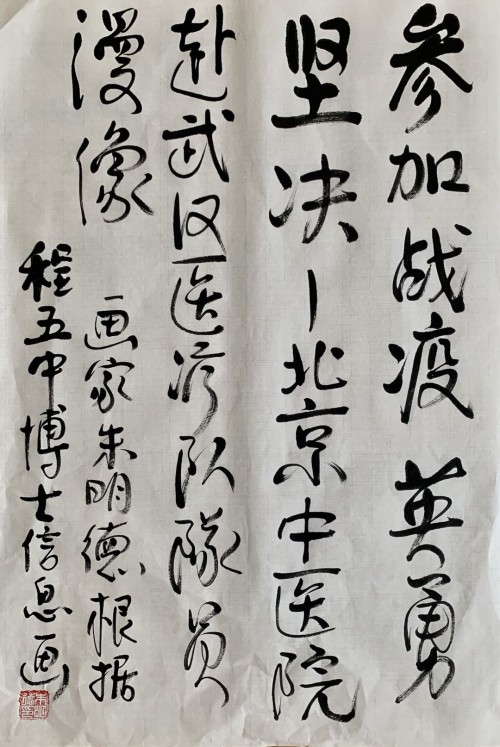 参加战疫英勇
坚决—北京中医院
赴武汉医疗队隊员
漫像
画家朱明德根据
程五中博士信息画